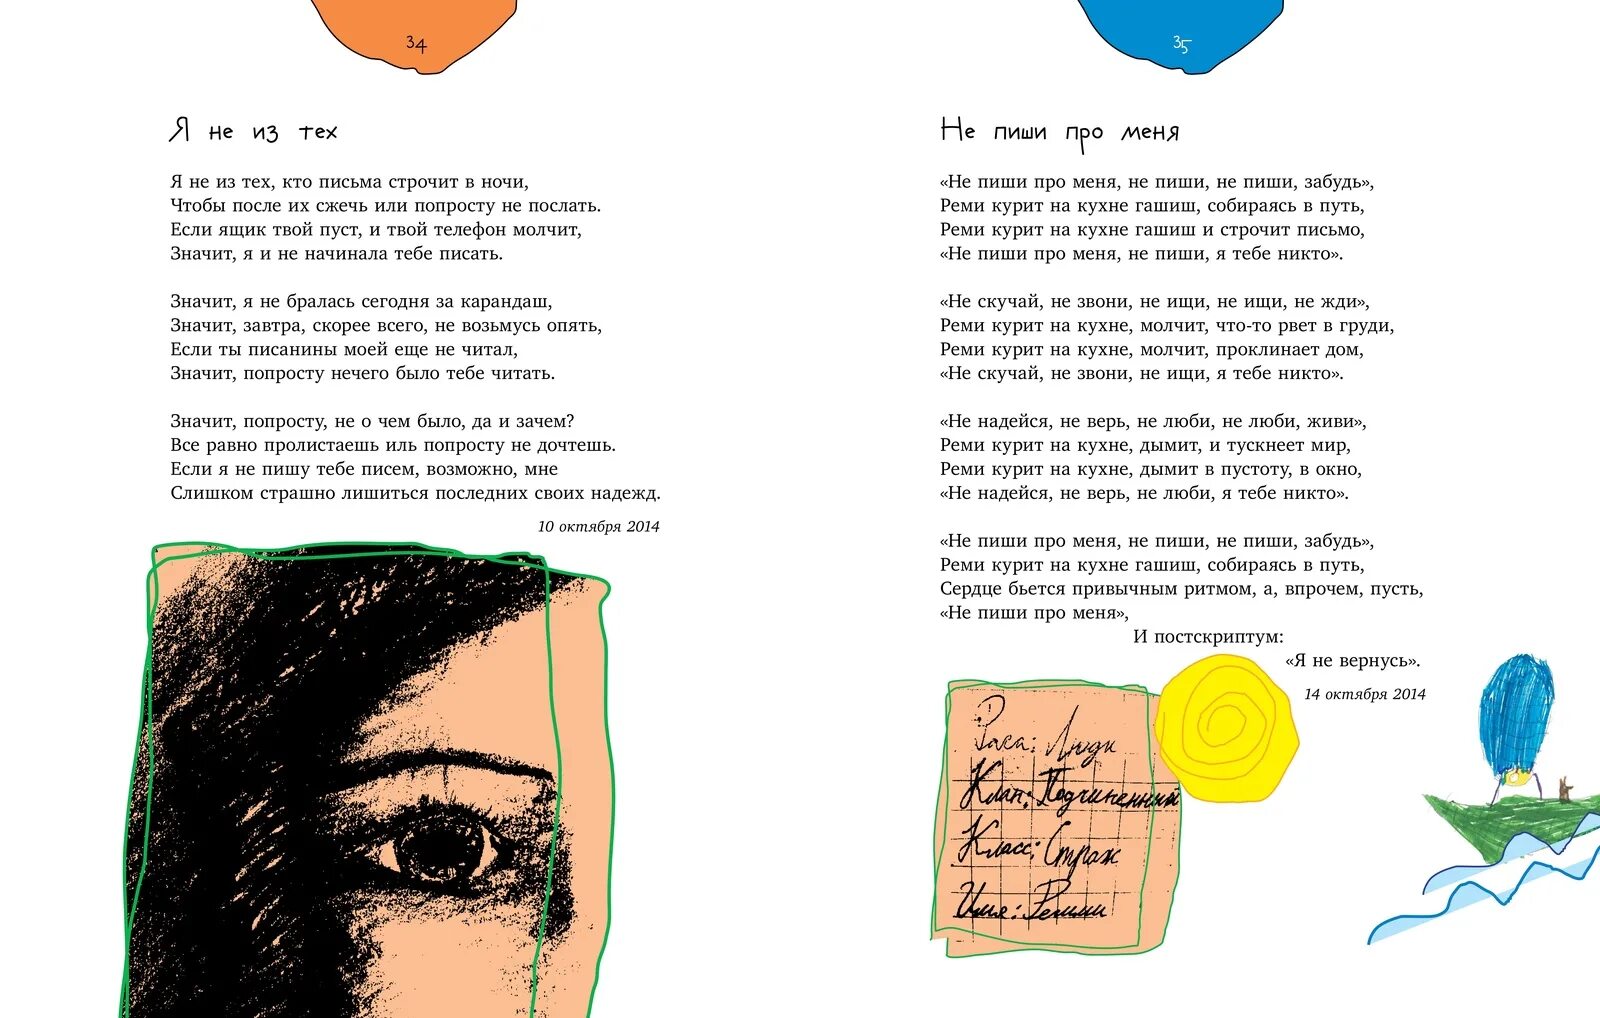 34
Я не из тех
Я не из тех, кто письма строчит в ночи,
Чтобы после их сжечь или попросту не послать.
Если ящик твой пуст, и твой телефон молчит,
Значит, я и не начинала тебе писать.
Значит, я не бралась сегодня за карандаш,
Значит, завтра, скорее всего, не возьмусь опять,
Если ты писанины моей еще не читал,
Значит, попросту нечего было тебе читать.
Значит, попросту, не о чем было, да и зачем?
Все равно пролистаешь иль попросту не дочтешь.
Если я не пишу тебе писем, возможно, мне
Слишком страшно лишиться последних своих надежд.
10 октября 2014
35
Не пиши про меня
«Не пиши про меня, не пиши, не пиши, забудь»,
Реми курит на кухне гашиш, собираясь в путь,
Реми курит на кухне гашиш и строчит письмо,
«Не пиши про меня, не пиши, я тебе никто».
«Не скучай, не звони, не ищи, не ищи, не жди»,
Реми курит на кухне, молчит, что-то рвет в груди,
Реми курит на кухне, молчит, проклинает дом,
«Не скучай, не звони, не ищи, я тебе никто».
«Не надейся, не верь, не люби, не люби, живи»,
Реми курит на кухне, дымит, и тускнеет мир,
Реми курит на кухне, дымит в пустоту, в окно,
«Не надейся, не верь, не люби, я тебе никто».
«Не пиши про меня, не пиши, не пиши, забудь»,
Реми курит на кухне гашиш, собираясь в путь,
Сердце бьется привычным ритмом, а, впрочем, пусть,
«Не пиши про меня»,
И постскриптум:
«Я не вернусь».
14 октября 2014
Раса: Люди
Клан: Подчиненный
Класс: Страж
Имя: Реми